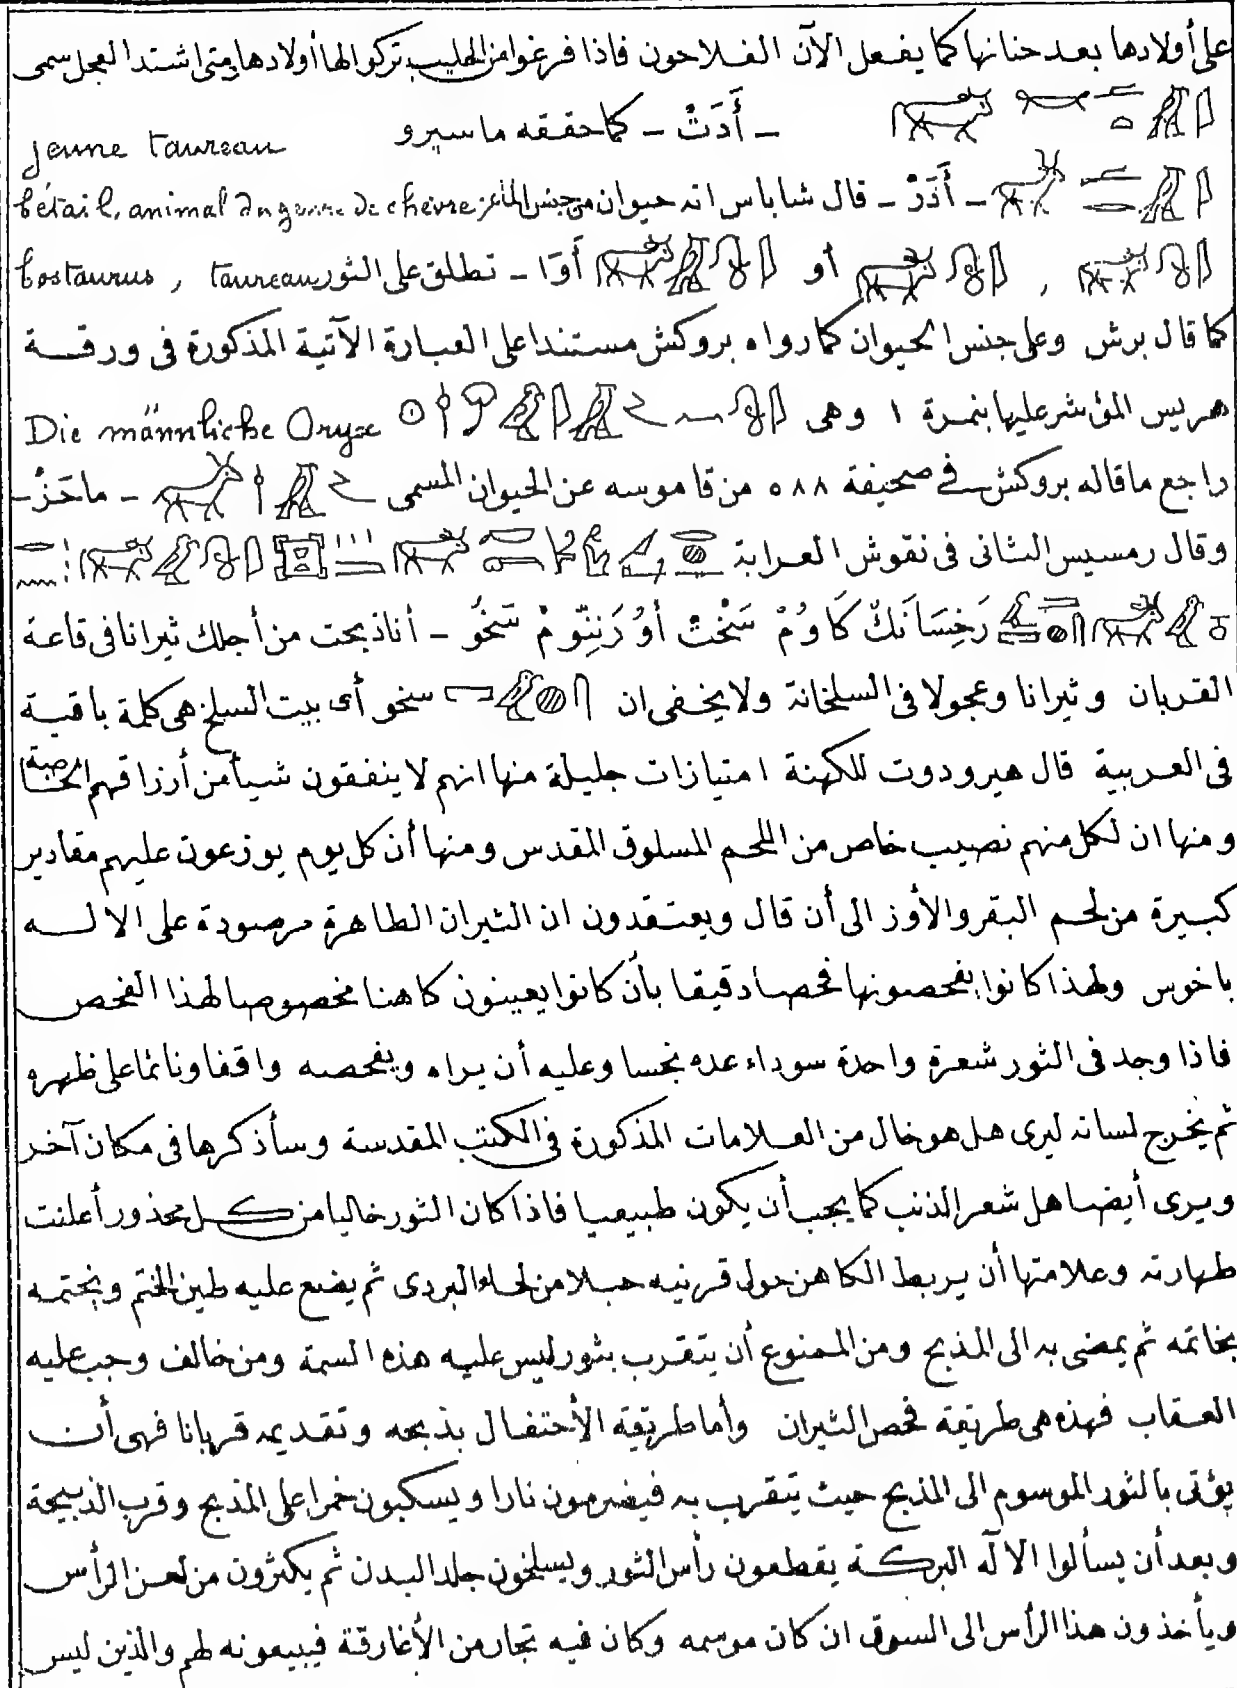 على أولادها بعد حنانها كما يفعل الآن الفلاحون فاذا فرغوا من الحليب تركوا لها أولادها ومتى اشتد العجل سمى
ـ أَدَتْ ـ كما حققه ماسيرو jeune taureau
ـ أَدَرْ ـ قال شاباس انه حيوان من جنس الماعز bétail, animal du genre de chèvre
, أو أَوَا ـ تطلق على الثور bostaurus , taureau
كما قال برش وعلى جنس الحيوان كما رواه بروكش مستندا على العبارة الآتية المذكورة فى ورقة
هريس المؤشر عليها بنمرة ١ وهى Die männliche Oryx
راجع ما قاله بروكش فى صحيفة ٥٨٨ من قاموسه عن الحيوان المسمى ـ ماحَزْ ـ
وقال رمسيس الثانى فى نقوش العرابة
رَخِسَا نَكْ كَا وُمْ سَخْتْ أوُ رَنِنّو مْ سَخُو ـ أنا ذبحت من أجلك ثيرانا فى قاعة
القربان وثيرانا وعجولا فى السلخانة ولا يخفى ان سخو أى بيت السلخ هى كلمة باقية
فى العربية قال هيرودوت للكهنة امتيازات جليلة منها انهم لا ينفقون شيأ من أرزاقهم الخاصة
ومنها ان لكل منهم نصيب خاص من اللحم المسلوق المقدس ومنها أن كل يوم يوزعون عليهم مقادير
كبيرة من لحم البقر والأوز الى أن قال ويعتقدون ان الثيران الطاهرة مرصودة على الاله
باخوس ولهذا كانوا يفحصونها فحصا دقيقا بأن كانوا يعينون كاهنا مخصوصا لهذا الفحص
فاذا وجد فى الثور شعرة واحدة سوداء عده نجسا وعليه أن يراه ويفحصه واقفا ونائما على ظهره
ثم يخرج لسانه ليرى هل هو خال من العلامات المذكورة فى الكتب المقدسة وسأذكرها فى مكان آخر
ويرى أيضا هل شعر الذنب كما يجب أن يكون طبيعيا فاذا كان الثور خاليا من كل محذور أعلنت
طهارته وعلامتها أن يربط الكاهن حول قرنيه حبلا من لحاء البردى ثم يضع عليه طين الختم ويختمه
بخاتمه ثم يمضى به الى المذبح ومن الممنوع أن يتقرب بثور ليس عليه هذه السمة ومن خالف وجب عليه
العقاب فهذه هى طريقة فحص الثيران وأما طريقة الأحتفال بذبحه وتقديمه قربانا فهى أن
يؤتى بالثور الموسوم الى المذبح حيث يتقرب به فيضرمون نارا ويسكبون خمرا على المذبح وقرب الذبيحة
وبعد أن يسألوا الالآه البركة يقطعون رأس الثور ويسلخون جلد البدن ثم يكثرون من لعن الرأس
ويأخذون هذا الرأس الى السوق ان كان موسمه وكان فيه تجار من الأغارقة فيبيعونه لهم والذين ليس